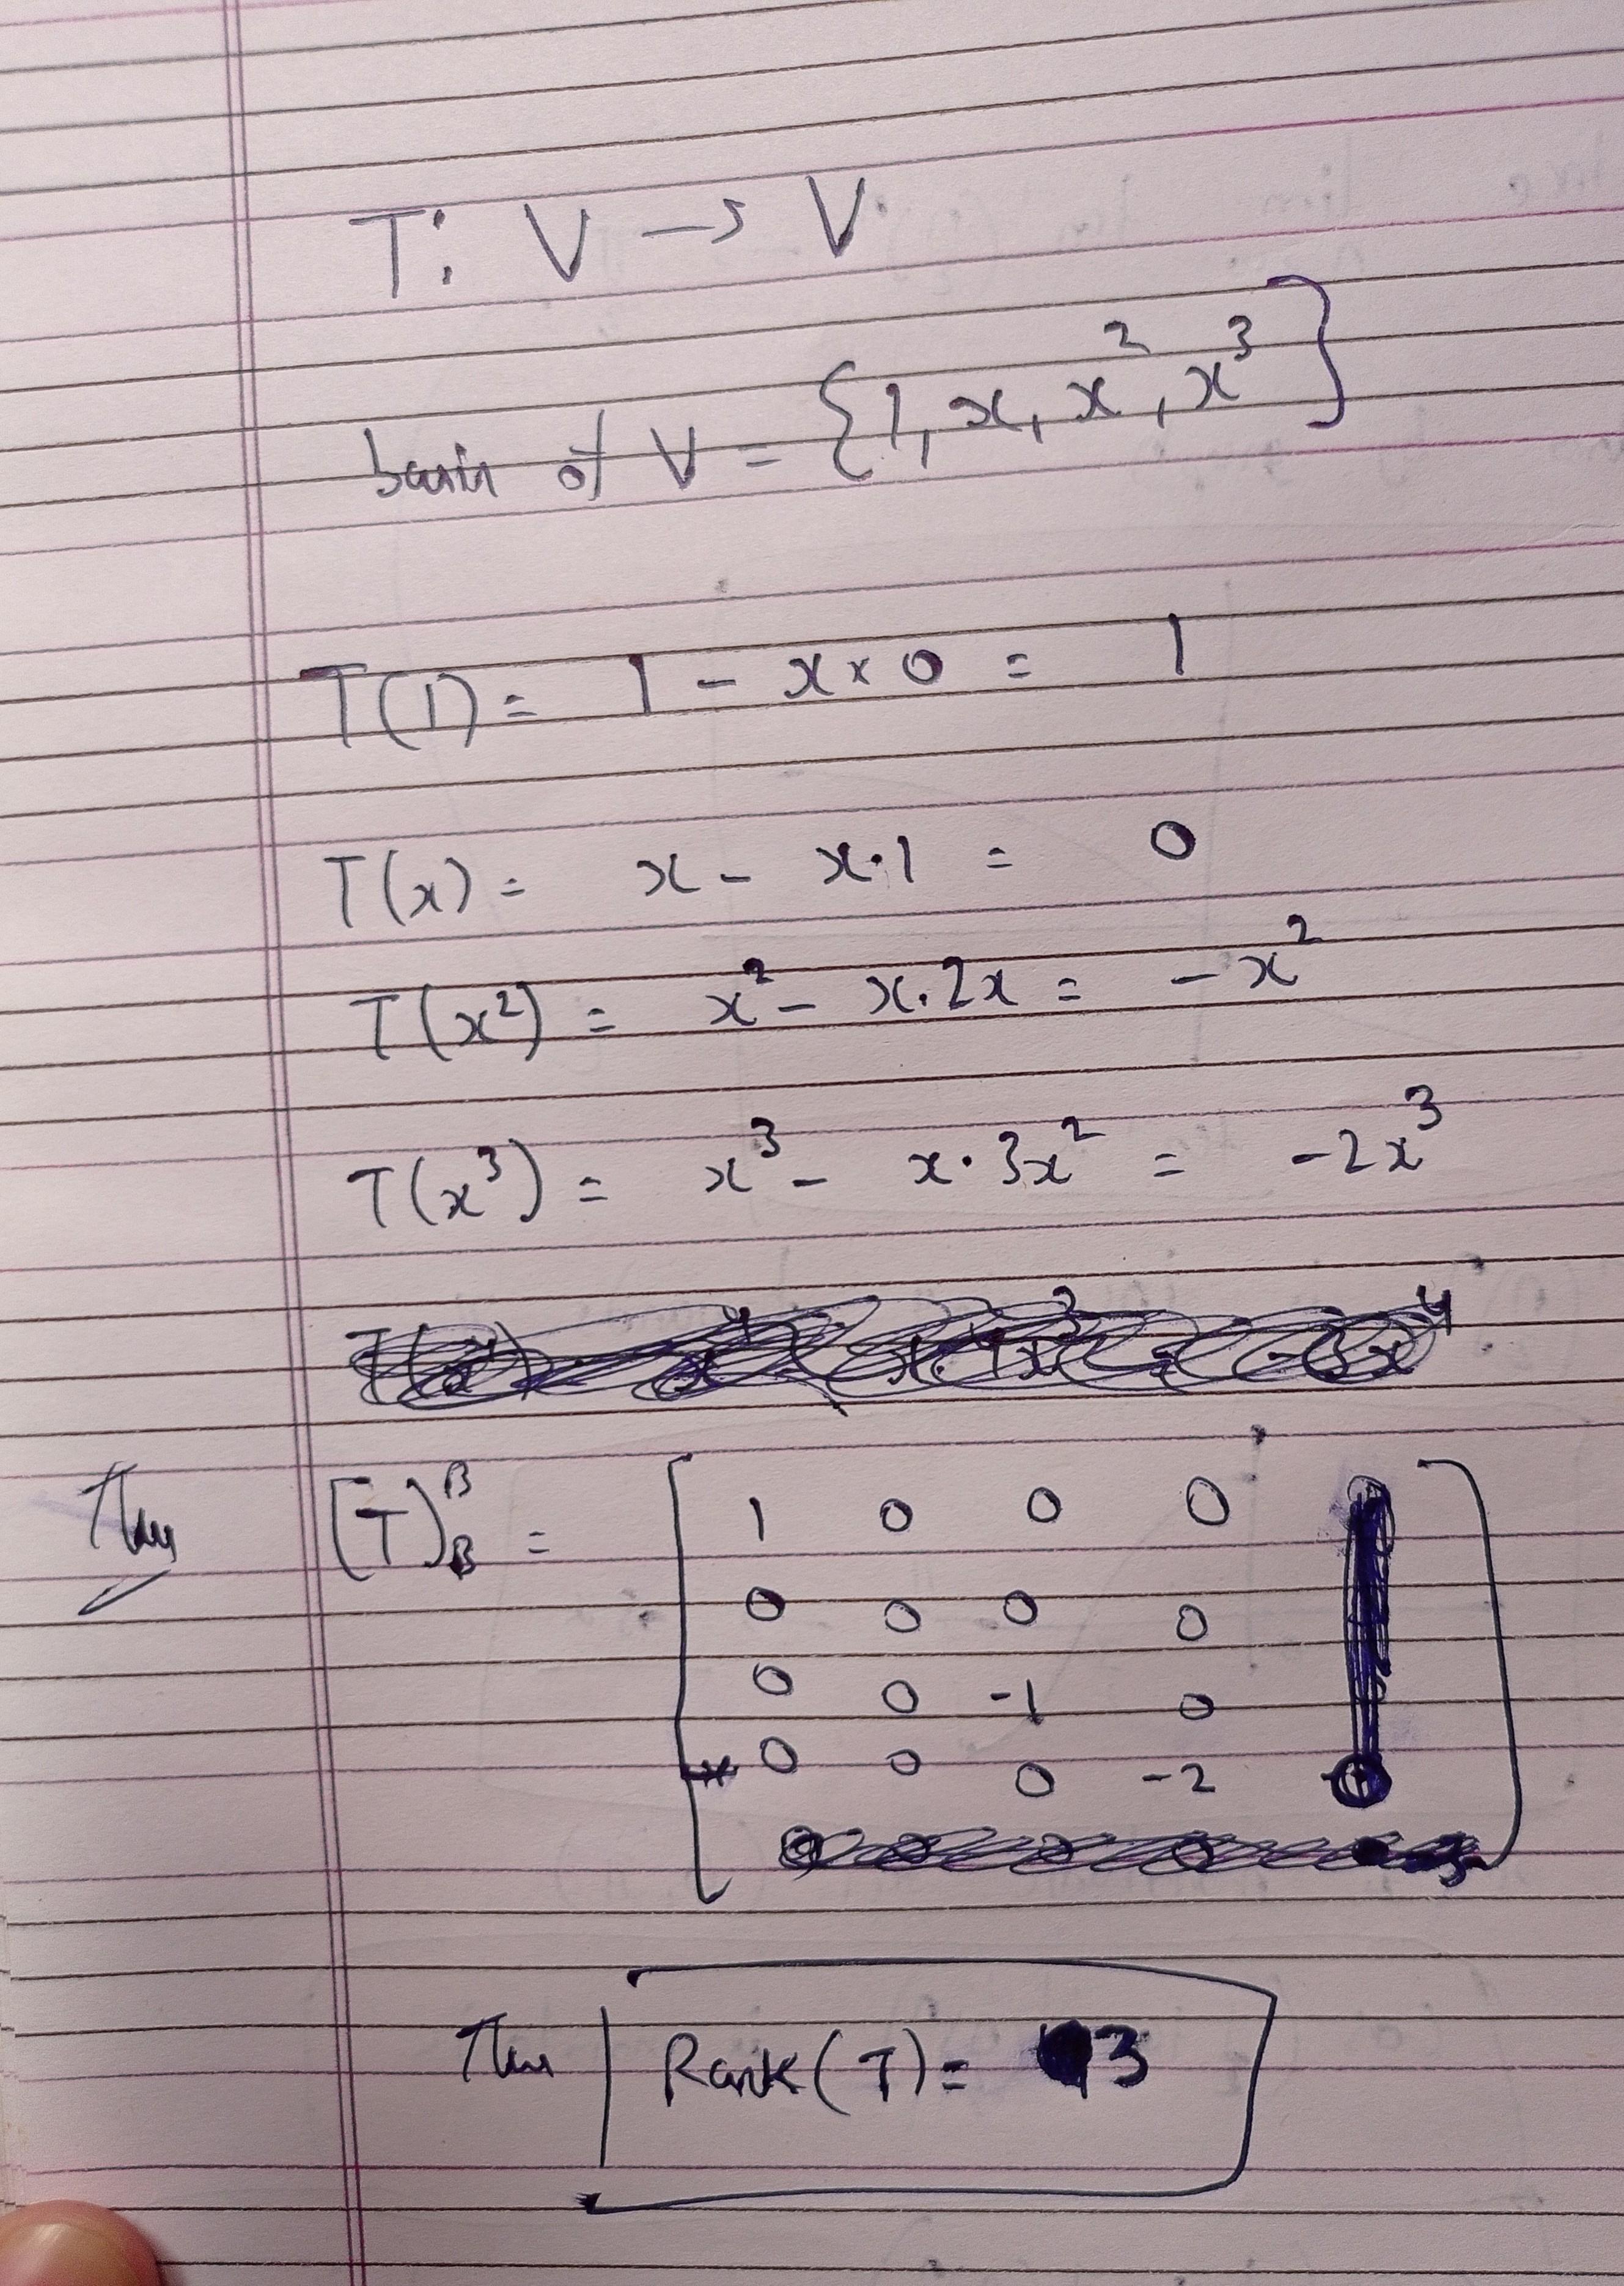 T: V → V
basis of V = {1, x, x², x³}
T(1) = 1 - x × 0 = 1
T(x) = x - x·1 = 0
T(x²) = x² - x·2x = -x²
T(x³) = x³ - x·3x² = -2x³
Thus [T]ᵝᵦ = [
1 0 0 0
0 0 0 0
0 0 -1 0
0 0 0 -2
]
Thus Rank(T) = 3